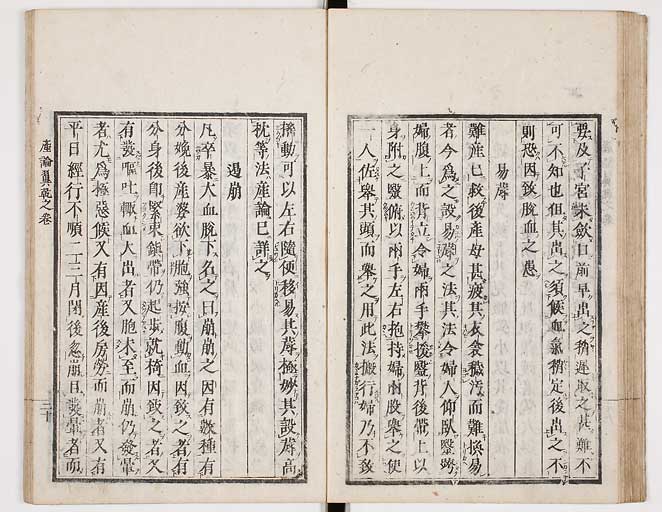 要及子宮未斂口前早出之稍遲取之甚難不
可不知也但其出之須候血氣稍定後出之不
則恐因致脫血之患
易蓐
難產已救後產母甚疲其衣衾穢汚而難換易
者今爲之設易蓐之法其法令婦人仰臥毉跨
婦腹上而背立令婦兩手攀援毉背後帶上以
身附之毉俯以兩手左右抱持婦兩股舉之使
一人佐舉其頭而舉之用此法搬行婦乃不致
搖動可以左右隨便移易其蓐極妙其設蓐高
枕等法產論已詳之
遏崩
凡卒暴大血脫下名之曰崩崩之因有數種有
分娩後產婆欲下胞強按腹動血因致之者有
分身後卽緊束鎮帶仍起步就椅因致之者又
有發嘔吐輙血大出者又胞未至而崩仍發暈
者尤爲極惡候又有因產後房勞而崩者又有
平日經行不順二三月閉後忽崩日發暈者而
產論翼乾之卷
三十